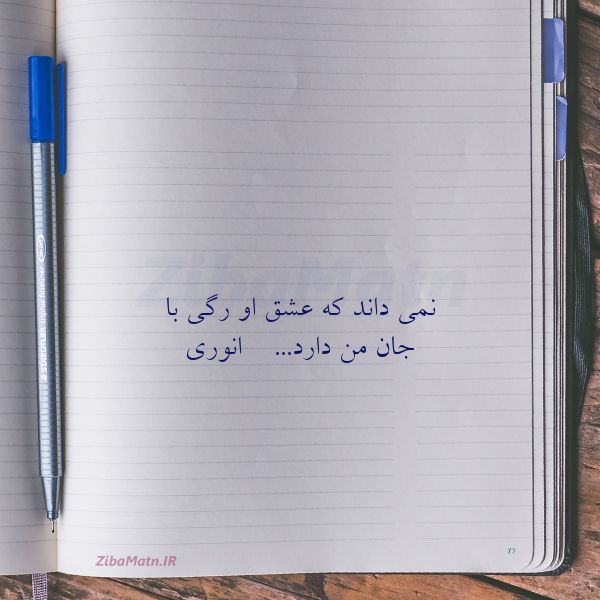 ZibaMatn
نمی داند که عشق او رگی با
جان من دارد... انوری
ZibaMatn.IR
77